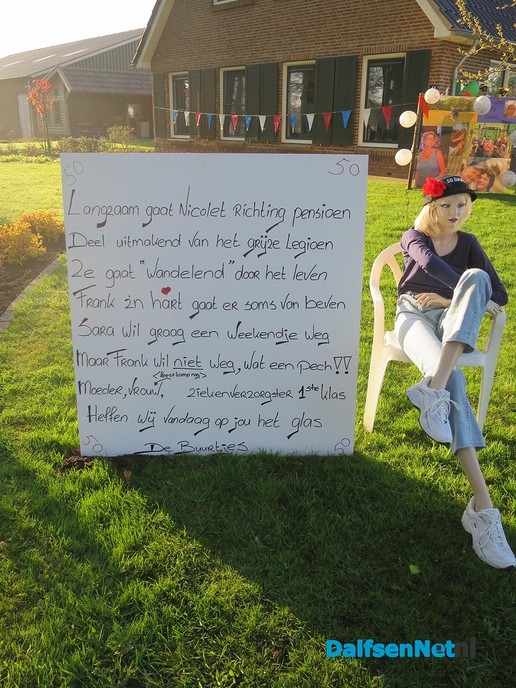 50 50
Langzaam gaat Nicolet Richting pensioen
Deel uitmakend van het grijze Legioen
Ze gaat "Wandelend" door het leven
Frank z'n hart gaat er soms van beven
Sara wil graag een weekendje weg
Maar Frank wil niet weg, wat een pech!!
Moeder, vrouw, ziekenverzorgster 1ste klas
Heffen wij vandaag op jou het glas
De Buurtjes
50 50
DalfsenNet.nl